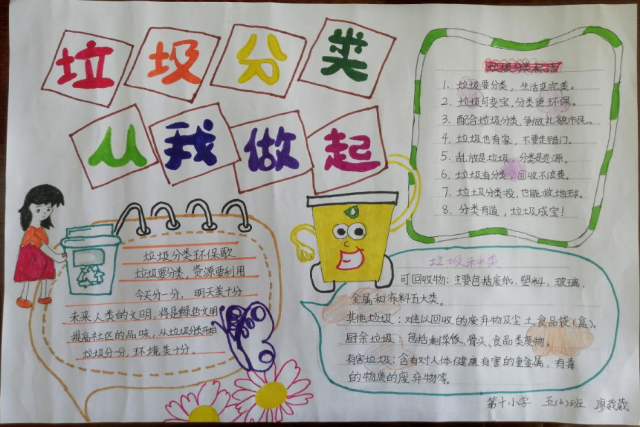 垃圾分类
从我做起
垃圾分类标语
1、垃圾要分类,生活变完美。
2、垃圾可变宝,分类更环保。
3、配合垃圾分类,争做礼貌市民。
4、垃圾也有家,不要走错门。
5、乱放是垃圾,分类是资源。
6、垃圾有分类,回收不浪费。
7、垃圾分类投,
8、分类有道,垃圾成宝!
垃圾分类环保歌
垃圾要分类,资源要利用
今天分一分,明天美十分
未来人类的文明,将是绿色文明
提高社区的品味,从垃圾分类开始
垃圾分一分,环境美十分.
垃圾种类
可回收物:主要包括废纸,塑料,玻璃,
金属和布料五大类。
其他垃圾:难以回收的废弃物及尘土,食品袋(盒)。
厨余垃圾:包括剩菜饭、骨头、食品类废物。
有害垃圾:含有对人体健康有害的重金属,有毒
的物质的废弃物等。
第十小学 五(4)班 廖